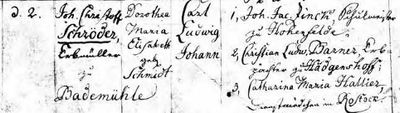 d. 2.
Joh. Christoff
Schröder,
Erbmüller
zu
Bademühle
Dorothea
Maria
Elisabeth
geb.
Schmidt
Carl
Ludwig
Johann
1, Joh. Jac. Finck Schulmeister
zu Hohenfelde.
2, Christian Ludw. Barner, Erb
pachter zu Hädgenshoff;
3, Catharina Maria Hallier,
in Rostock.